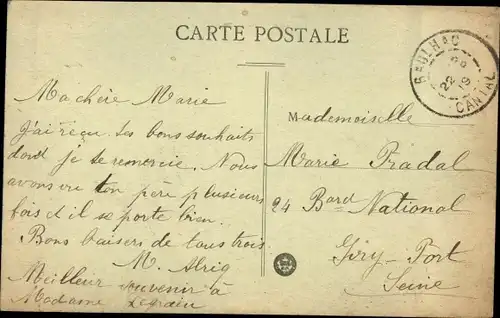 CARTE POSTALE
RAULHAC
22
19
CANTAL
Ma chère Marie
J'ai reçu tes bons souhaits
dont je te remercie. Nous
avons vu ton père plusieurs
fois et il se porte bien.
Bons baisers de tous trois
M. Alriq
Meilleur souvenir à
Madame
Mademoiselle
Marie Pradal
24 Bard National
Ivry-Port
Seine